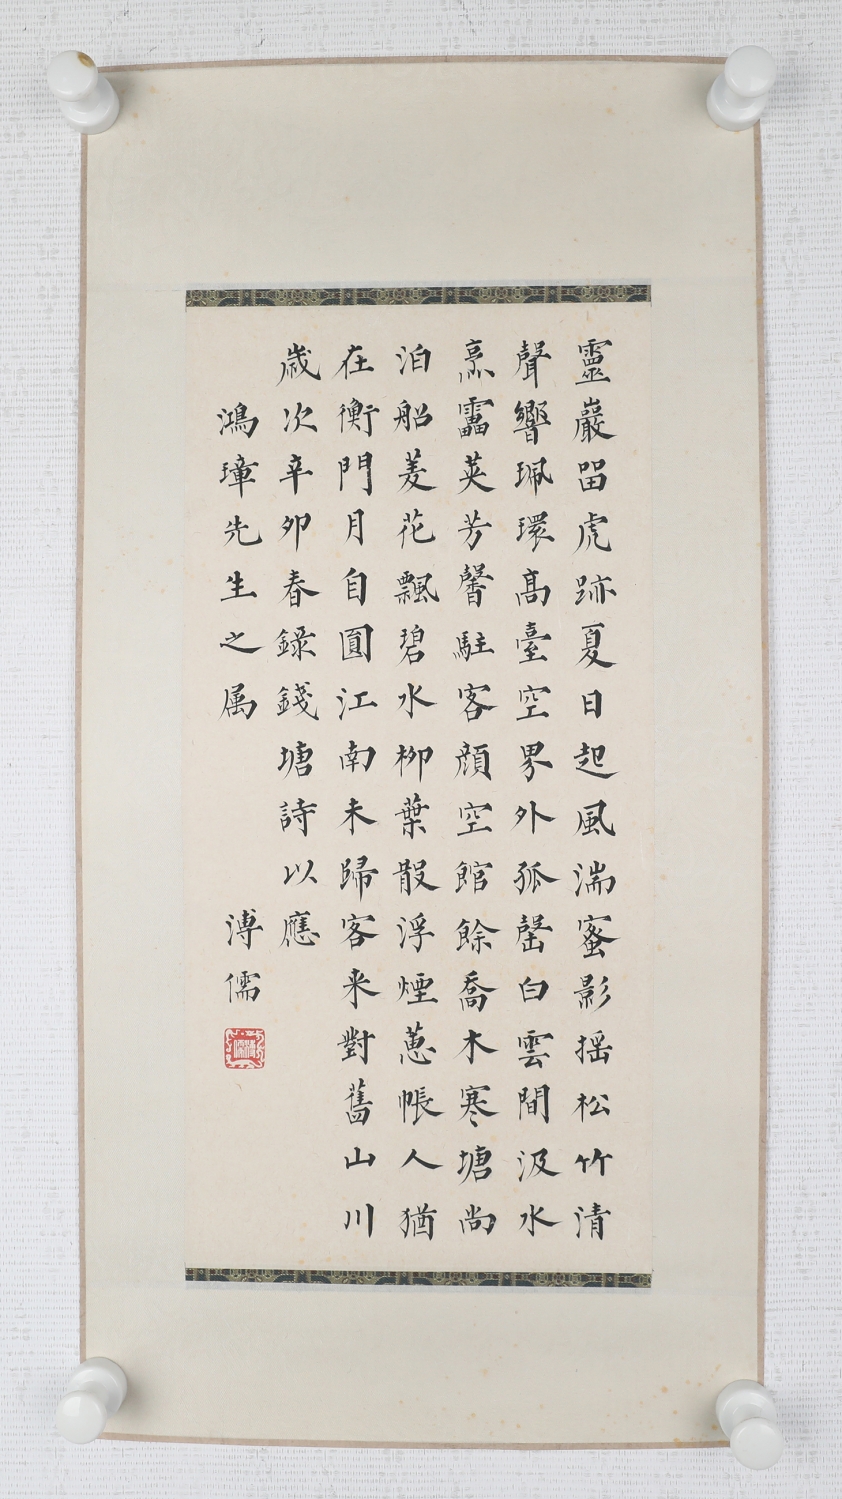 靈巖畱虎跡夏日起風湍蜜影搖松竹清
聲響珮環高臺空界外孤磬白雲間汲水
烹靁英芳馨駐客顔空館餘喬木寒塘尚
泊船菱花飄碧水柳葉散浮煙蕙帳人猶
在衡門月自圓江南未歸客来對舊山川
歲次辛卯春錄錢塘詩以應
鴻璋先生之属
溥儒